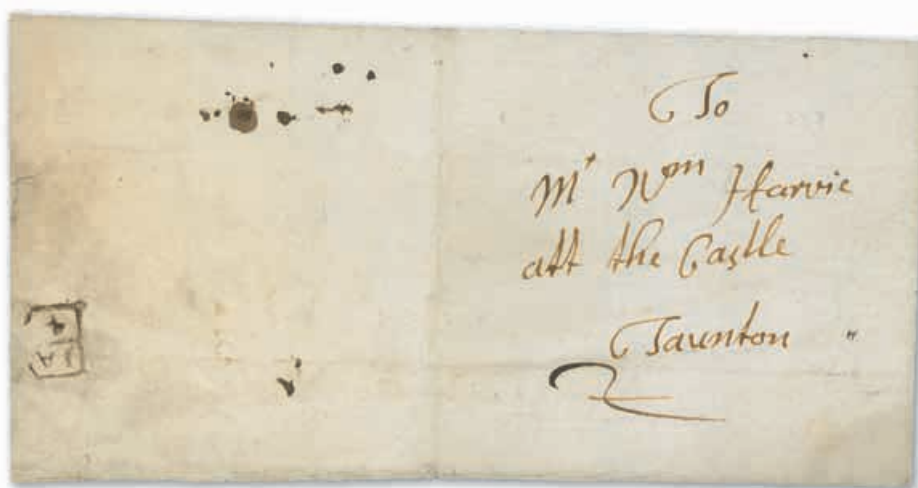 To
Mr Wm Harvie
att the Castle
Taunton